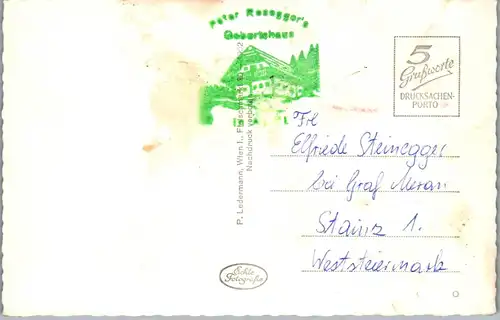 Peter Rosegger's
Geburtshaus
5
Grußworte
DRUCKSACHEN-
PORTO
P. Ledermann, Wien I.,
Nachdruck verboten
Frl
Elfriede Steinegger
bei Graf Meran
Stainz 1.
Weststeiermark
Echte
Fotografie